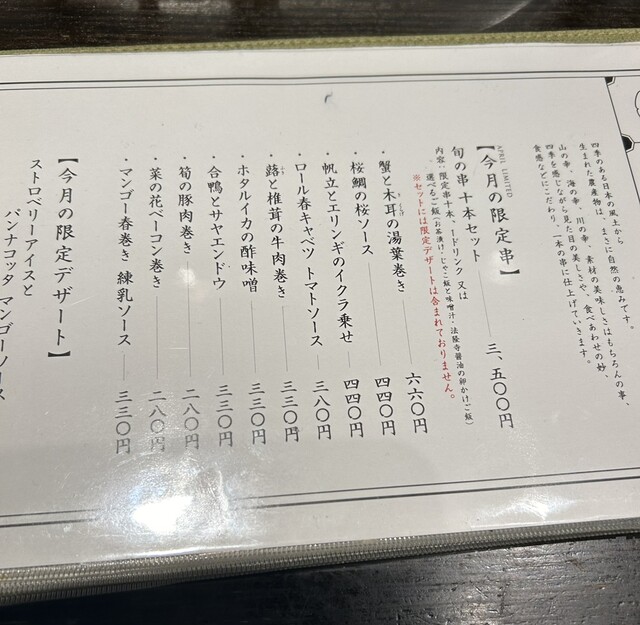 四季のある日本の風土から
生まれた農産物は、まさに自然の恵みです。
山の幸、海の幸、川の幸、素材の美味しさはもちろんの事、
四季を感じながら見た目の美しさや、食べあわせの妙、
食感などにこだわり、一本の串に仕上げていきます。
APRIL LIMITED
【今月の限定串】
旬の串十本セット 三、五〇〇円
内容：限定串十本、1ドリンク 又は
選べるご飯（お茶漬け・じゃこ飯と味噌汁・法隆寺醤油の卵かけご飯）
※セットには限定デザートは含まれておりません。
・蟹と木耳の湯葉巻き 六六〇円
・桜鯛の桜ソース 四四〇円
・帆立とエリンギのイクラ乗せ 四四〇円
・ロール春キャベツ トマトソース 三八〇円
・蕗と椎茸の牛肉巻き 三三〇円
・ホタルイカの酢味噌 三三〇円
・合鴨とサヤエンドウ 三三〇円
・筍の豚肉巻き 二八〇円
・菜の花ベーコン巻き 二八〇円
・マンゴー春巻き 練乳ソース 三三〇円
【今月の限定デザート】
ストロベリーアイスと
パンナコッタ マンゴーソース